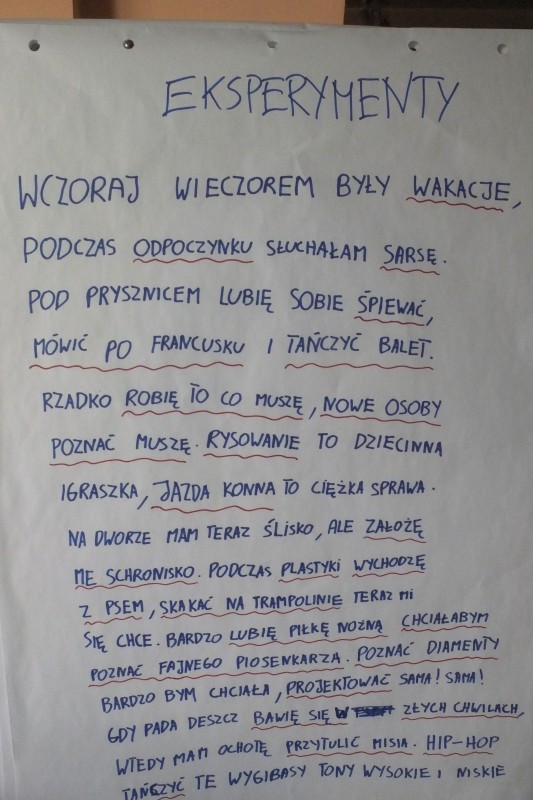 EKSPERYMENTY
WCZORAJ WIECZOREM BYŁY WAKACJE,
PODCZAS ODPOCZYNKU SŁUCHAŁAM SARSĘ.
POD PRYSZNICEM LUBIĘ SOBIE ŚPIEWAĆ,
MÓWIĆ PO FRANCUSKU I TAŃCZYĆ BALET.
RZADKO ROBIĘ TO CO MUSZĘ, NOWE OSOBY
POZNAĆ MUSZĘ. RYSOWANIE TO DZIECINNA
IGRASZKA, JAZDA KONNA TO CIĘŻKA SPRAWA.
NA DWORZE MAM TERAZ ŚLISKO, ALE ZAŁOŻĘ
ME SCHRONISKO. PODCZAS PLASTYKI WYCHODZĘ
Z PSEM, SKAKAĆ NA TRAMPOLINIE TERAZ MI
SIĘ CHCE. BARDZO LUBIĘ PIŁKĘ NOŻNĄ CHCIAŁABYM
POZNAĆ FAJNEGO PIOSENKARZA. POZNAĆ DIAMENTY
BARDZO BYM CHCIAŁA, PROJEKTOWAĆ SAMA! SAMA!
GDY PADA DESZCZ BAWIĘ SIĘ W ZŁYCH CHWILACH,
WTEDY MAM OCHOTĘ PRZYTULIĆ MISIA. HIP-HOP
TAŃCZYĆ TE WYGIBASY TONY WYSOKIE I NISKIE